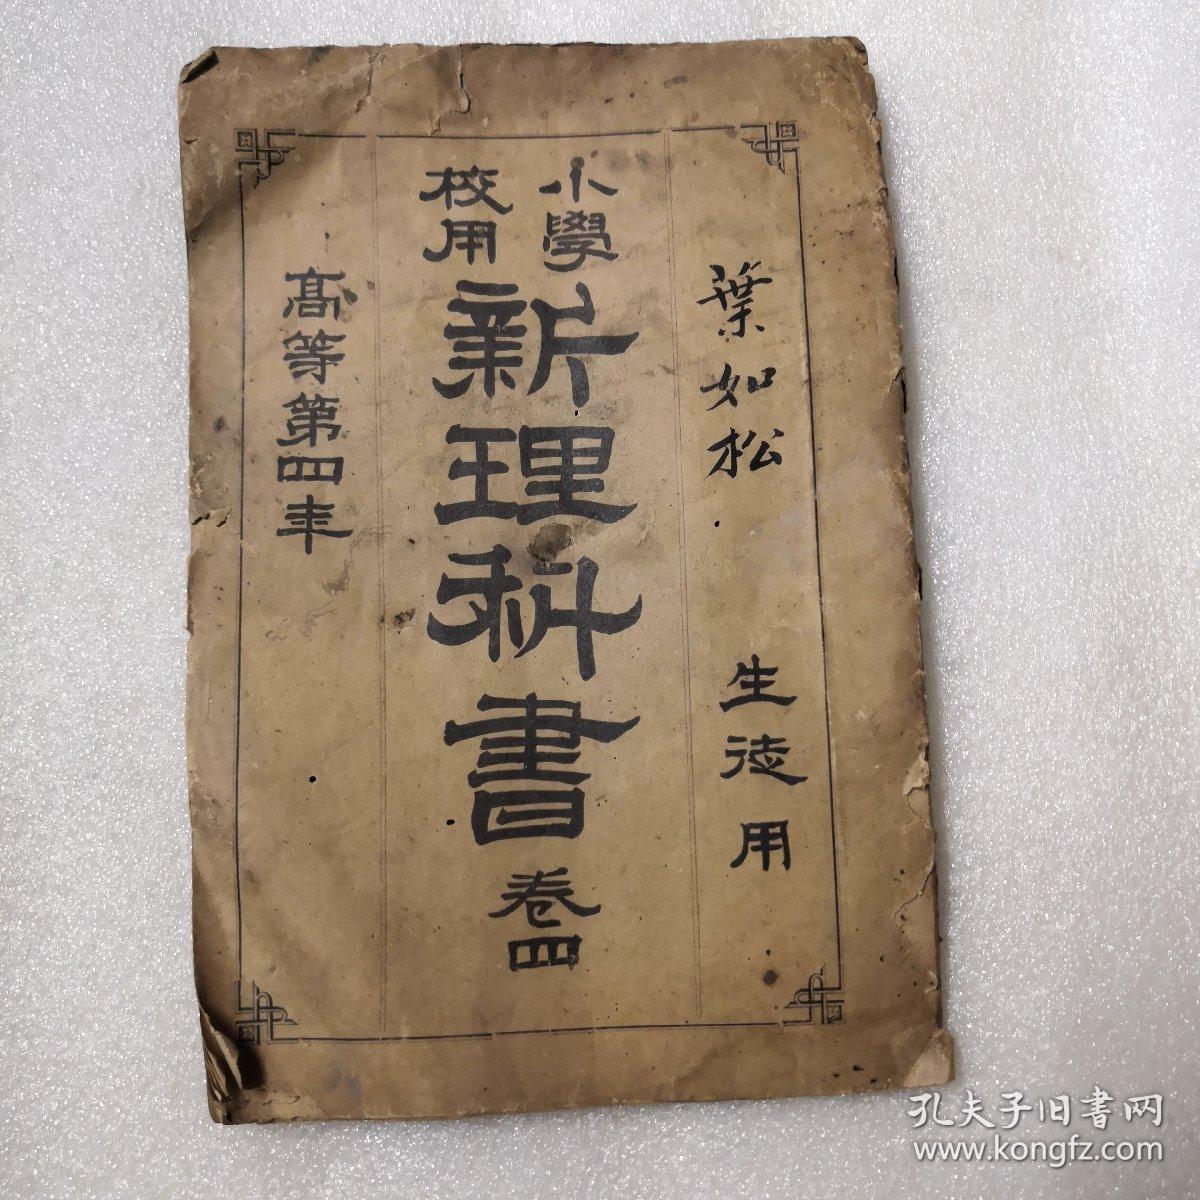 葉如松
生徒用
小學校用
新理科書
卷四
高等第四年
孔夫子旧書网
www.kongfz.com